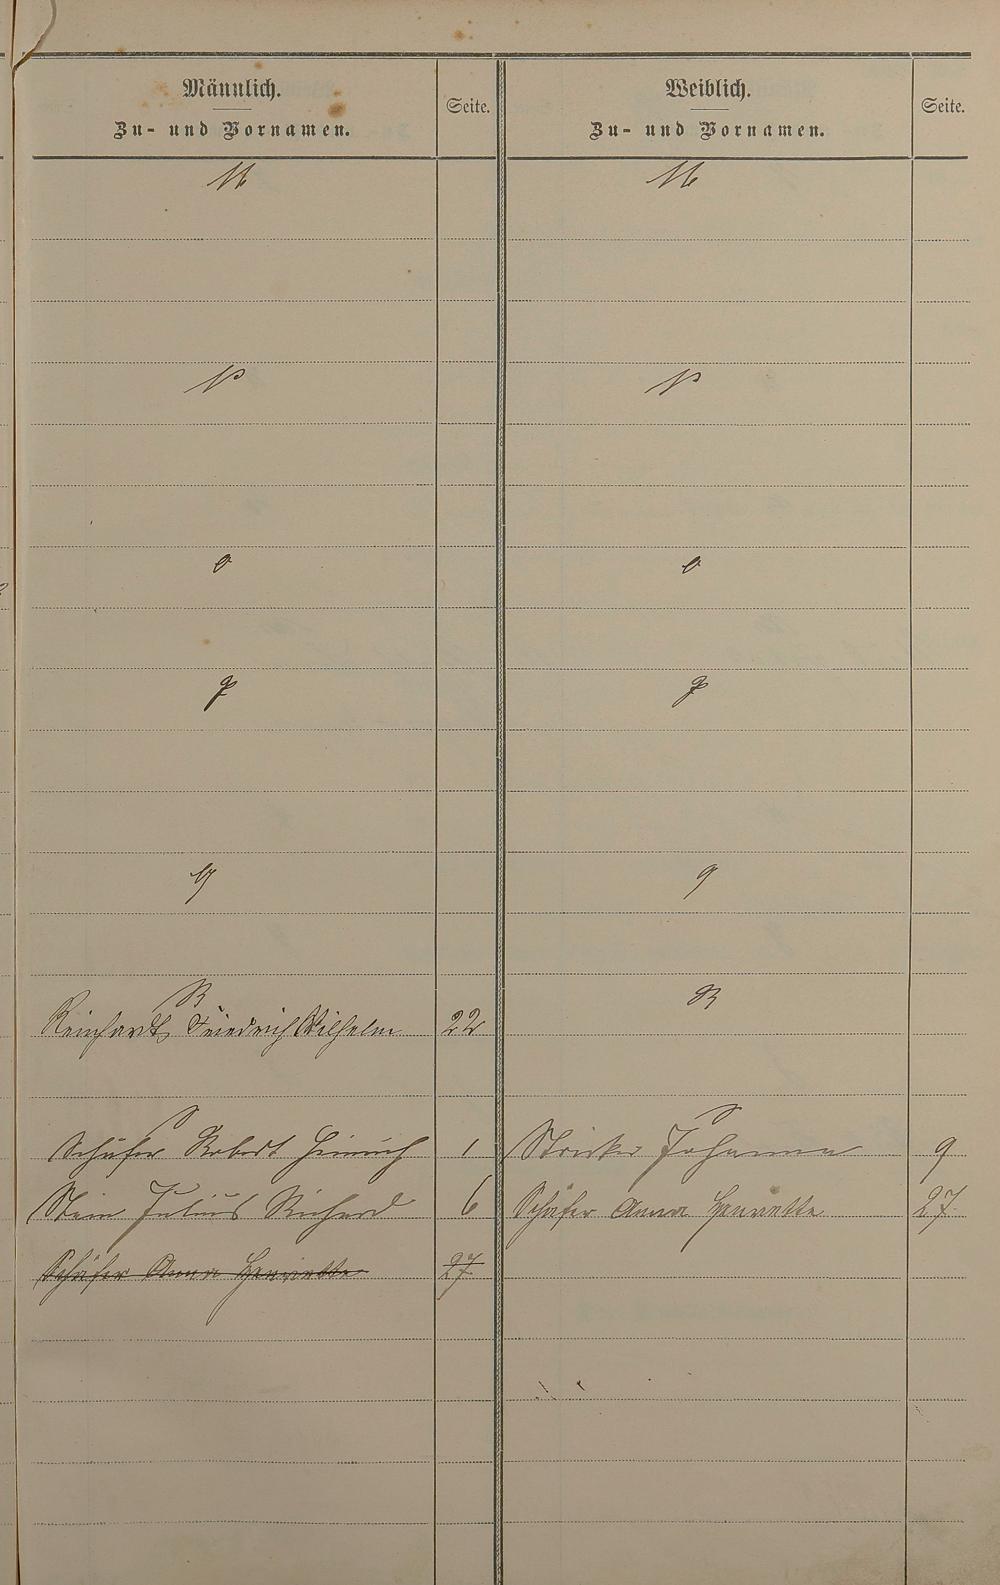 Männlich.
Zu- und Vornamen.
Seite.
Weiblich.
Zu- und Vornamen.
Seite.
M M
N N
O O
P P
Q Q
R R
Reinhardt, Friedrich Wilhelm 22
S S
Schäfer Robert Heinrich 1 Stricker Johanna 9
Stein Julius Richard 6 Schäfer Anna Henriette 27.
Schäfer Anna Henriette 27.